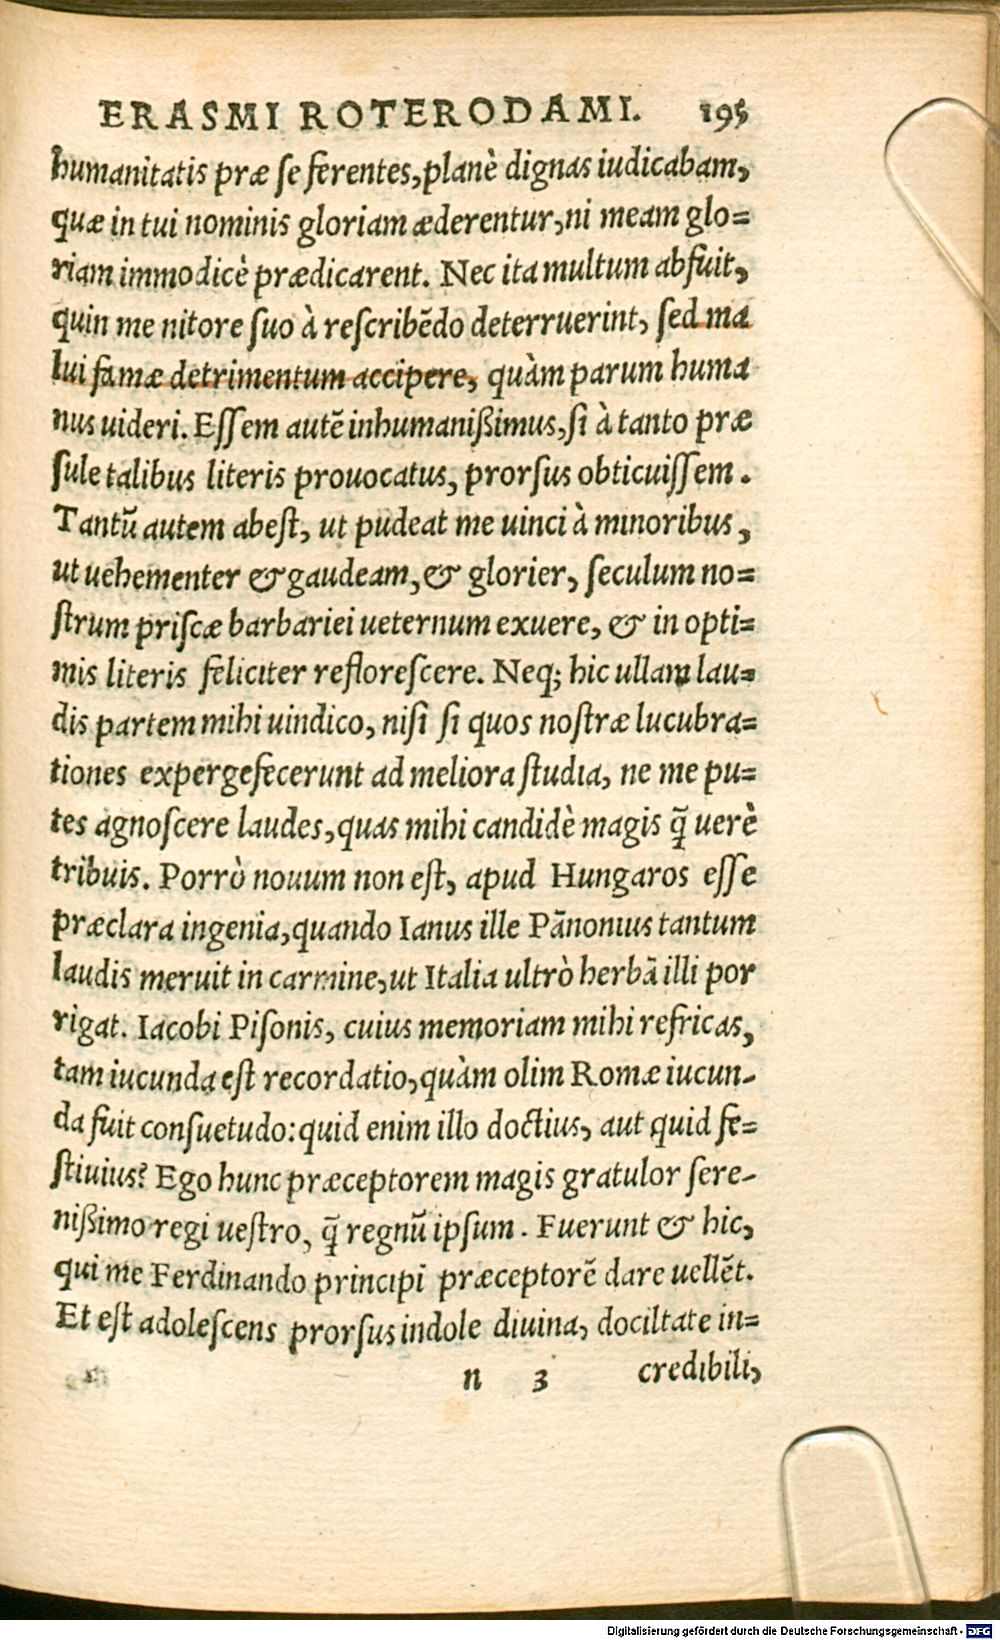 ERASMI ROTERODAMI. 195
humanitatis præ se ferentes, planè dignas iudicabam,
quæ in tui nominis gloriam æderentur, ni meam glo=
riam immodicè prædicarent. Nec ita multum abfuit,
quin me nitore suo à rescribẽdo deterruerint, sed ma
lui famæ detrimentum accipere, quàm parum huma
nus uideri. Essem autẽ inhumanißimus, si à tanto præ
sule talibus literis prouocatus, prorsus obticuissem.
Tantũ autem abest, ut pudeat me uinci à minoribus,
ut uehementer & gaudeam, & glorier, seculum no=
strum priscæ barbariei ueternum exuere, & in opti=
mis literis feliciter reflorescere. Neq; hic ullam lau=
dis partem mihi uindico, nisi si quos nostræ lucubra=
tiones expergefecerunt ad meliora studia, ne me pu=
tes agnoscere laudes, quas mihi candidè magis q̃ uerè
tribuis. Porrò nouum non est, apud Hungaros esse
præclara ingenia, quando Ianus ille Pãnonius tantum
laudis meruit in carmine, ut Italia ultrò herbã illi por
rigat. Iacobi Pisonis, cuius memoriam mihi refricas,
tam iucunda est recordatio, quàm olim Romæ iucun-
da fuit consuetudo: quid enim illo doctius, aut quid fe=
stiuius? Ego hunc præceptorem magis gratulor sere-
nißimo regi uestro, q̃ regnũ ipsum. Fuerunt & hic,
qui me Ferdinando principi præceptorẽ dare uellẽt.
Et est adolescens prorsus indole diuina, dociltate in=
n 3 credibili,
Digitalisierung gefördert durch die Deutsche Forschungsgemeinschaft - DFG